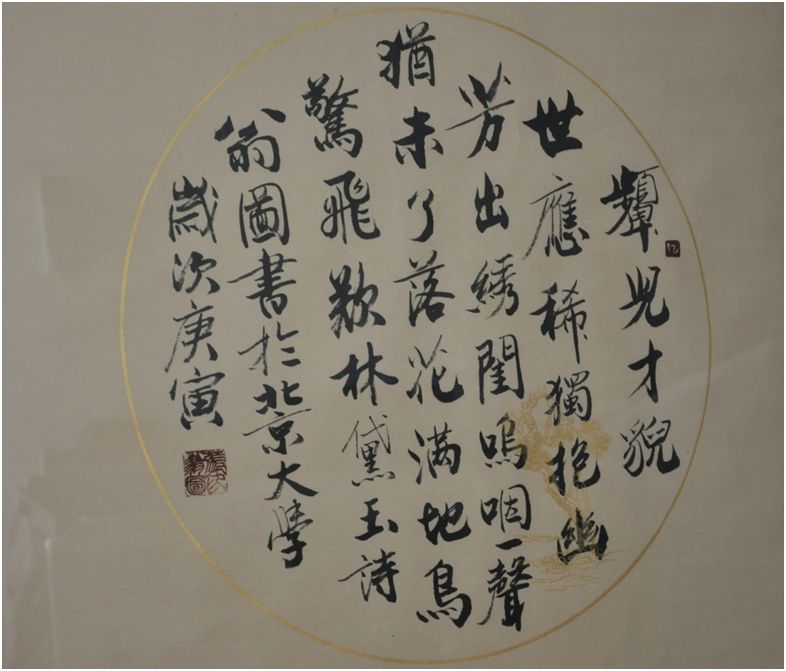 顰兒才貌
世應稀獨抱幽
芳出綉閨嗚咽一聲
猶未了落花滿地鳥
驚飛歎林黛玉詩
翁圖書於北京大學
歲次庚寅